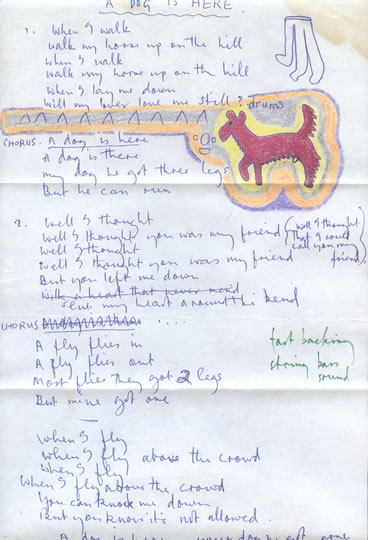 A DOG IS HERE.
1. When I walk
walk my horse up on the hill
when I walk
walk my horse up on the hill
When I lay me down
Will my lover love me still? drums
CHORUS. A dog is here
A dog is there
my dog he got three legs
But he can run
2. Well I thought
Well I thought you was my friend (well I thought
Well I thought that I could
Well I thought you was my friend call you my
But you left me down friend.)
With a heart that never mend
Put my heart around the bend
CHORUS ....
A fly flies in
A fly flies out
Most flies they got 2 legs
But mine got one
fast backing
string bass
sound
When I fly
When I fly above the crowd
When I fly
When I fly above the crowd
You can knock me down
But you know it's not allowed.
A dog is here